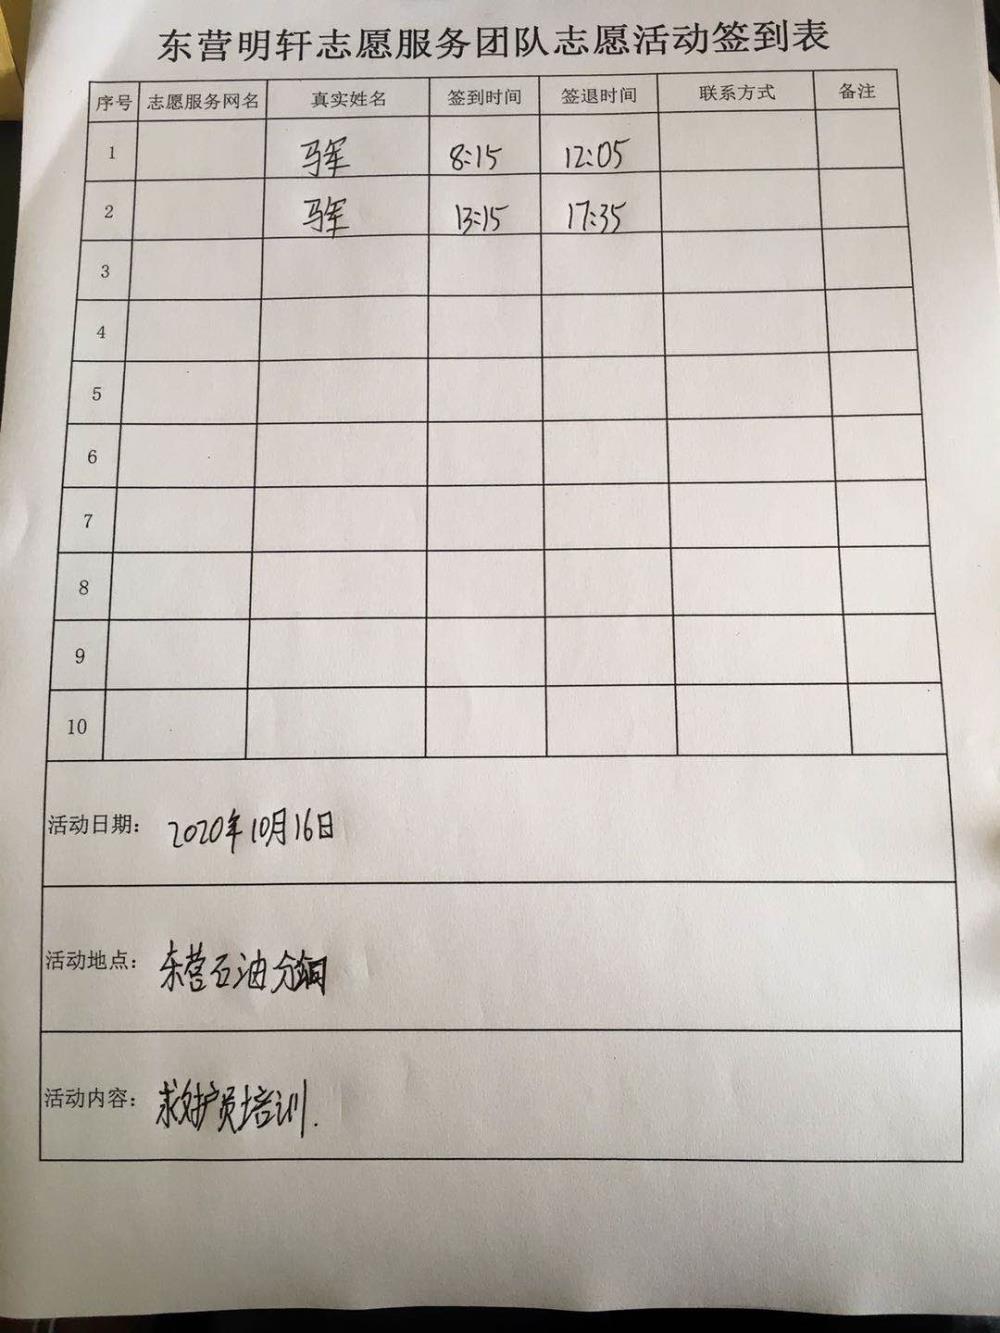 东营明轩志愿服务团队志愿活动签到表
序号 志愿服务网名 真实姓名 签到时间 签退时间 联系方式 备注
1 马军 8:15 12:05
2 马军 13:15 17:35
3
4
5
6
7
8
9
10
活动日期： 2020年10月16日
活动地点： 东营石油分公司
活动内容： 救护员培训.